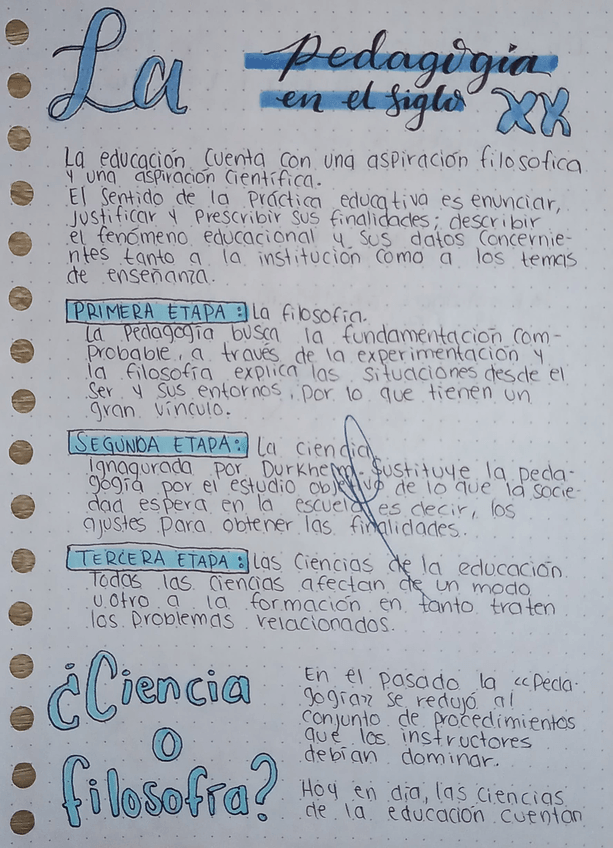 La pedagogía
en el siglo XX
La educación cuenta con una aspiración filosofica
y una aspiración científica.
El sentido de la práctica educativa es enunciar,
justificar y prescribir sus finalidades; describir
el fenómeno educacional y sus datos concernie-
ntes tanto a la institución como a los temas
de enseñanza.
PRIMERA ETAPA: La filosofía.
La pedagogía busca la fundamentación com-
probable, a través de la experimentación y
la filosofía explica las situaciones desde el
ser y sus entornos, por lo que tienen un
gran vínculo.
SEGUNDA ETAPA: La ciencia
Ignagurada por Durkheim sustituye la peda-
gogía por el estudio objetivo de lo que la socie-
dad espera en la escuela, es decir, los
ajustes para obtener las finalidades.
TERCERA ETAPA: Las ciencias de la educación.
Todas las ciencias afectan de un modo
u otro a la formación en tanto traten
los problemas relacionados.
¿Ciencia
o
filosofía?
En el pasado la «peda-
gogía» se redujó al
conjunto de procedimientos
que los instructores
debían dominar.
Hoy en día, las ciencias
de la educación cuentan